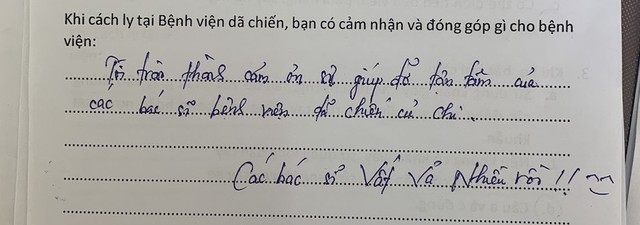 Khi cách ly tại Bệnh viện dã chiến, bạn có cảm nhận và đóng góp gì cho bệnh
viện:
Tôi trân thành cám ơn sự giúp đỡ tận tâm của
các bác sĩ bệnh viện dã chiến củ chi.
Các bác sĩ Vất Vả Nhiều rồi !!